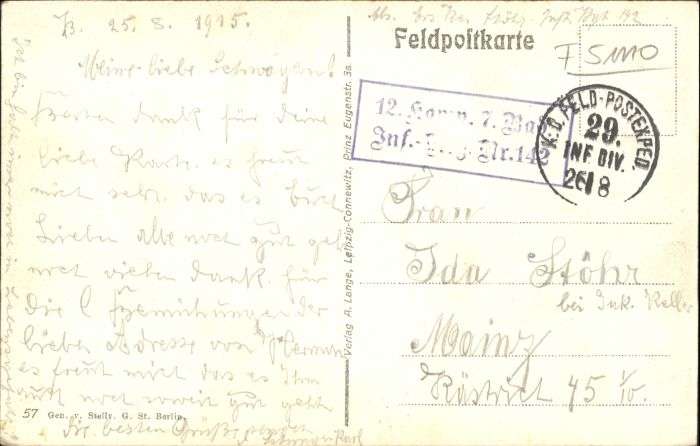 B. 25. 8. 1915.
Meine liebe Schwägerin!
Besten dank für deine
liebe Karte. es freut
mich sehr das es Euch
Lieben alle noch gut geht
noch vielen dank für
die Bemühungen der
lieben Adresse von Herman
es freut mich das es Ihm
auch noch soweit gut geht
die besten Grüße
57 Gen. v. Stellv. G. St. Berlin.
Verlag A. Lange, Leipzig-Connewitz, Prinz Eugenstr. 3a.
Feldpostkarte
F S
12. Komp. 7. Bad.
Inf.- Nr. 142
K.D. FELD-POSTEXPED.
29.
INF. DIV.
26 8
Frau
Ida Stöhr
bei Ink. Keller
Mainz
Kästrich 45 1/10.